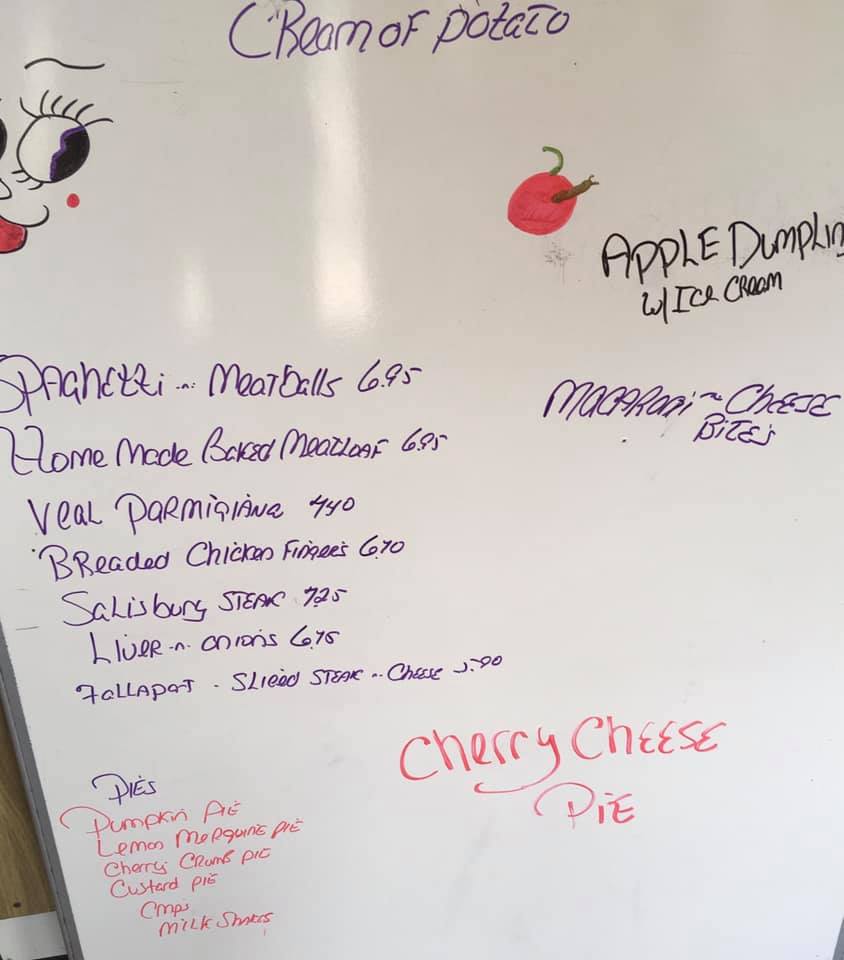 Cream of Potato
Apple Dumplin
w/ Ice Cream
Spaghetti -n- Meatballs 6.95
Macaroni ~ Cheese
Bites
Home Made Baked Meatloaf 6.95
Veal Parmigiana 7.40
Breaded Chicken Fingers 6.70
Salisburg Steak 7.25
Liver -n- Onions 6.75
Fallapart - Sliced Steak -n- Cheese 5.90
Cherry Cheese
Pie
Pies
Pumpkin Pie
Lemon Merguine Pie
Cherry Crumb Pie
Custard Pie
Milk Shakes